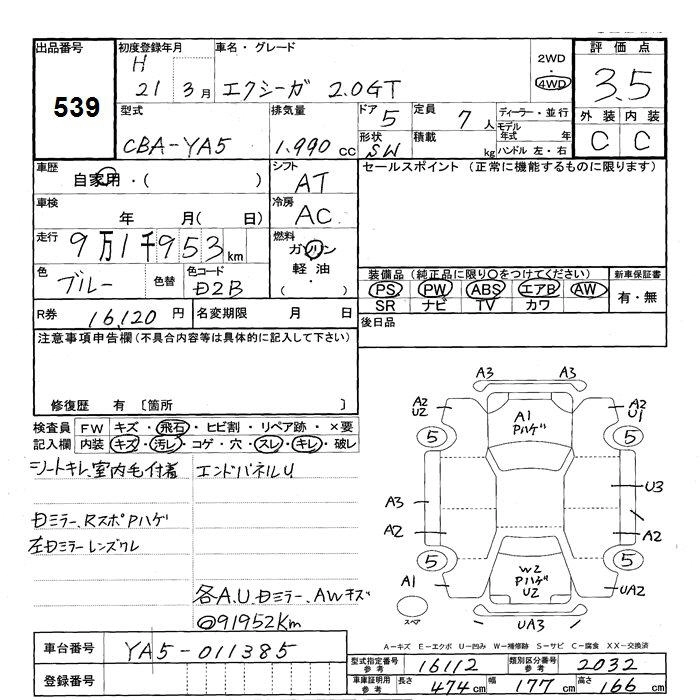 出品番号 初度登録年月 車名・グレード 評価点
539 H 21 3月 エクシーガ 2.0GT 2WD ・ 4WD 3.5
型式 排気量 ドア 5 定員 7人 ディーラー・並行 外装 内装
CBA-YA5 1.990 cc 形状 SW 積載 kg モデル年式 年 ハンドル 左・右 C C
車歴 自家用・( ) シフト AT セールスポイント (正常に機能するものに限ります)
車検 年 月( 日) 冷房 AC
走行 9万1千953km 燃料 ガソリン 軽油 ( ・ )
色 ブルー 色替 色コード D2B
装備品 (純正品に限り○をつけてください) 新車保証書
PS PW ABS エアB AW 有・無
SR ナビ TV カワ
R券 16,120円 名変期限 月 日 後日品
注意事項申告欄 (不具合内容等は具体的に記入して下さい)
修復歴 有 〔箇所 〕
検査員 FW キズ・飛石・ヒビ割・リペア跡・×要
記入欄 内装 キズ・汚レ・コゲ・穴・スレ・キレ・破レ
シートキレ、室内毛付着 エンドパネルU
Dミラー、RスポPハゲ
左Dミラーレンズワレ
各A.U.Dミラー、AWキズ
@91952Km
A3
A3
A2
U2
A1
Pハゲ
A2
U1
5
5
A3
U3
A2
A2
5
5
A1
W2
Pハゲ
U2
UA2
スペア
UA3
A-キズ E-エクボ U-凹み W-補修跡 S-サビ C-腐食 XX-交換済
車台番号 YA5-011385
型式指定番号 参考 16112 類別区分番号 参考 2032
登録番号
車庫証明用 参考 長さ 474cm 幅 177cm 高さ 166cm